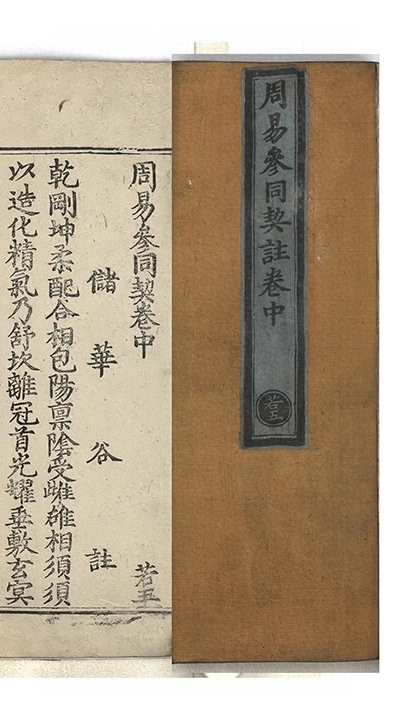 周易參同契註卷中
若五
周易參同契卷中
若五
儲華谷註
乾剛坤柔配合相包陽禀陰受雌雄相須須
以造化精氣乃舒坎離冠首光耀垂敷玄冥